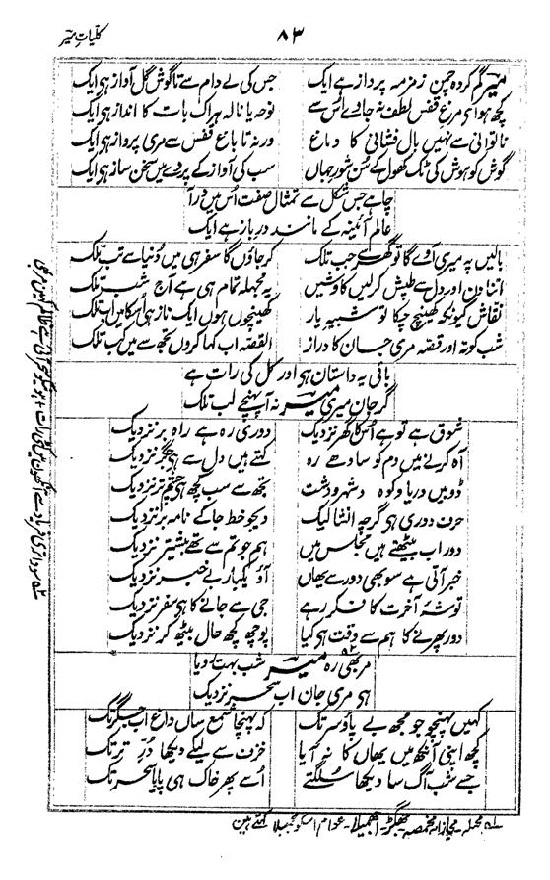 کلیاتِ میر
۸۳
میر گم کردہ چمن زمزمہ پرداز ہے ایک جس کی لے دام سے تا گوش گل آواز ہی ایک
کچھ ہو اے مرغ قفس لطف نہ جاوے اُس سے نوحہ یا نالہ ہر اک بات کا انداز ہی ایک
ناتوانی سے نہیں بال فشانی کا دماغ ورنہ تا باغ قفس سے مری پرواز ہی ایک
گوش کو ہوش کی ٹک کھول کے سن شور جہاں سب کی آواز کے پردے میں سخن ساز ہی ایک
چاہے جس شکل سے تمثال صفت اُس میں در آ
عالم آئینہ کے مانند در باز ہے ایک
بالیں پہ میری آوے گا تو گھر سے جب تلک کر جاؤں گا سفر ہی میں دنیا سے تب تلک
اتنا دن اور دل سے طپش کر لیں کاوشیں یہ مجہلہ تمام ہی ہے آج شب تلک
نقاش کیونکہ کھینچ چکا تو شبیہ یار کھینچوں ہوں ایک ناز ہی اُسکا میں اب تلک
شب کوتہ اور قصہ مری جان کا دراز القصّہ اب کہا کروں تجھ سے میں کب تلک
باقی یہ داستان ہی اور کل کی رات ہے
گر جان میری میر نہ آ پہنچے لب تلک
شوق ہے تو ہے اُس کا گھر نزدیک دوری رہ ہے راہ بر نزدیک
آہ کرنے میں دم کو سادھے رہ کہتے ہیں دل سے ہی جگر نزدیک
ڈوبیں دریا و کوہ و شہر و دشت تجھ سے سب کچھ ہی چشم تر نزدیک
حرف دوری ہی گرچہ انشا لیک دیجو خط جا کے نامہ بر نزدیک
دور اب بیٹھتے ہیں مجلس میں ہم جو تم سے تھے بیشتر نزدیک
خبر آتی ہے سو بھی دور سے یھاں آؤ یکبار بے خبر نزدیک
توشۂ آخرت کا فکر رہے جی سے جانے کا ہی سفر نزدیک
دور پھرنے کا ہم سے وقت ہی کیا پوچھ کچھ حال بیٹھ کر نزدیک
مر بھی رہ میر شب بہت رویا
ہی مری جان اب سحر نزدیک
کہیں پہنچو جو مجھ بے پا و سر تک کہ پہنچا شمع ساں داغ اب جگر تک
کچھ اپنی آنکھ میں یھاں کا نہ آیا خزف سے لیکے دیکھا دُرِّ تر تک
جسے شب آگ سا دیکھا سلگتے اُسے پھر خاک ہی پایا سحر تک